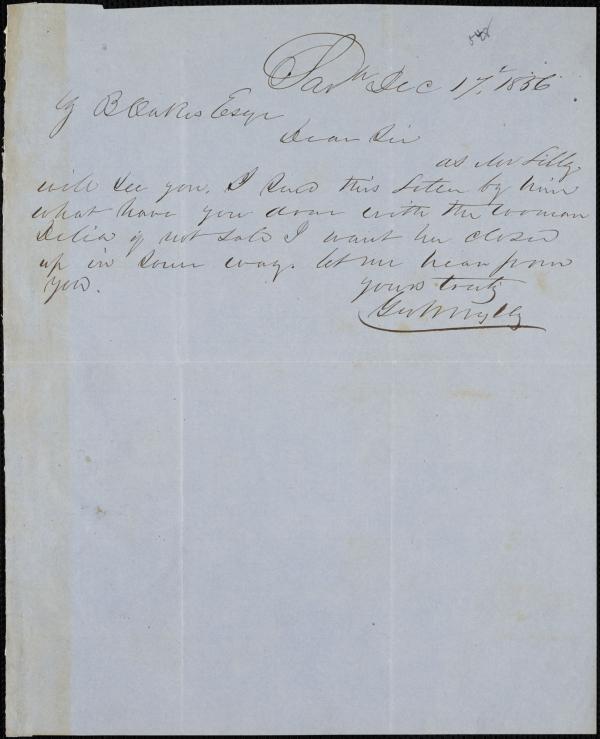 548
Savh Dec 17th 1856
Z B Oakes Esqr
Dear Sir
as Mr Lilly
will see you. I send this Letter by him
what have you done with the woman
Delia if not sold I want her closed
up in some way. let me hear from
you. yours truly
Geo W Wylly